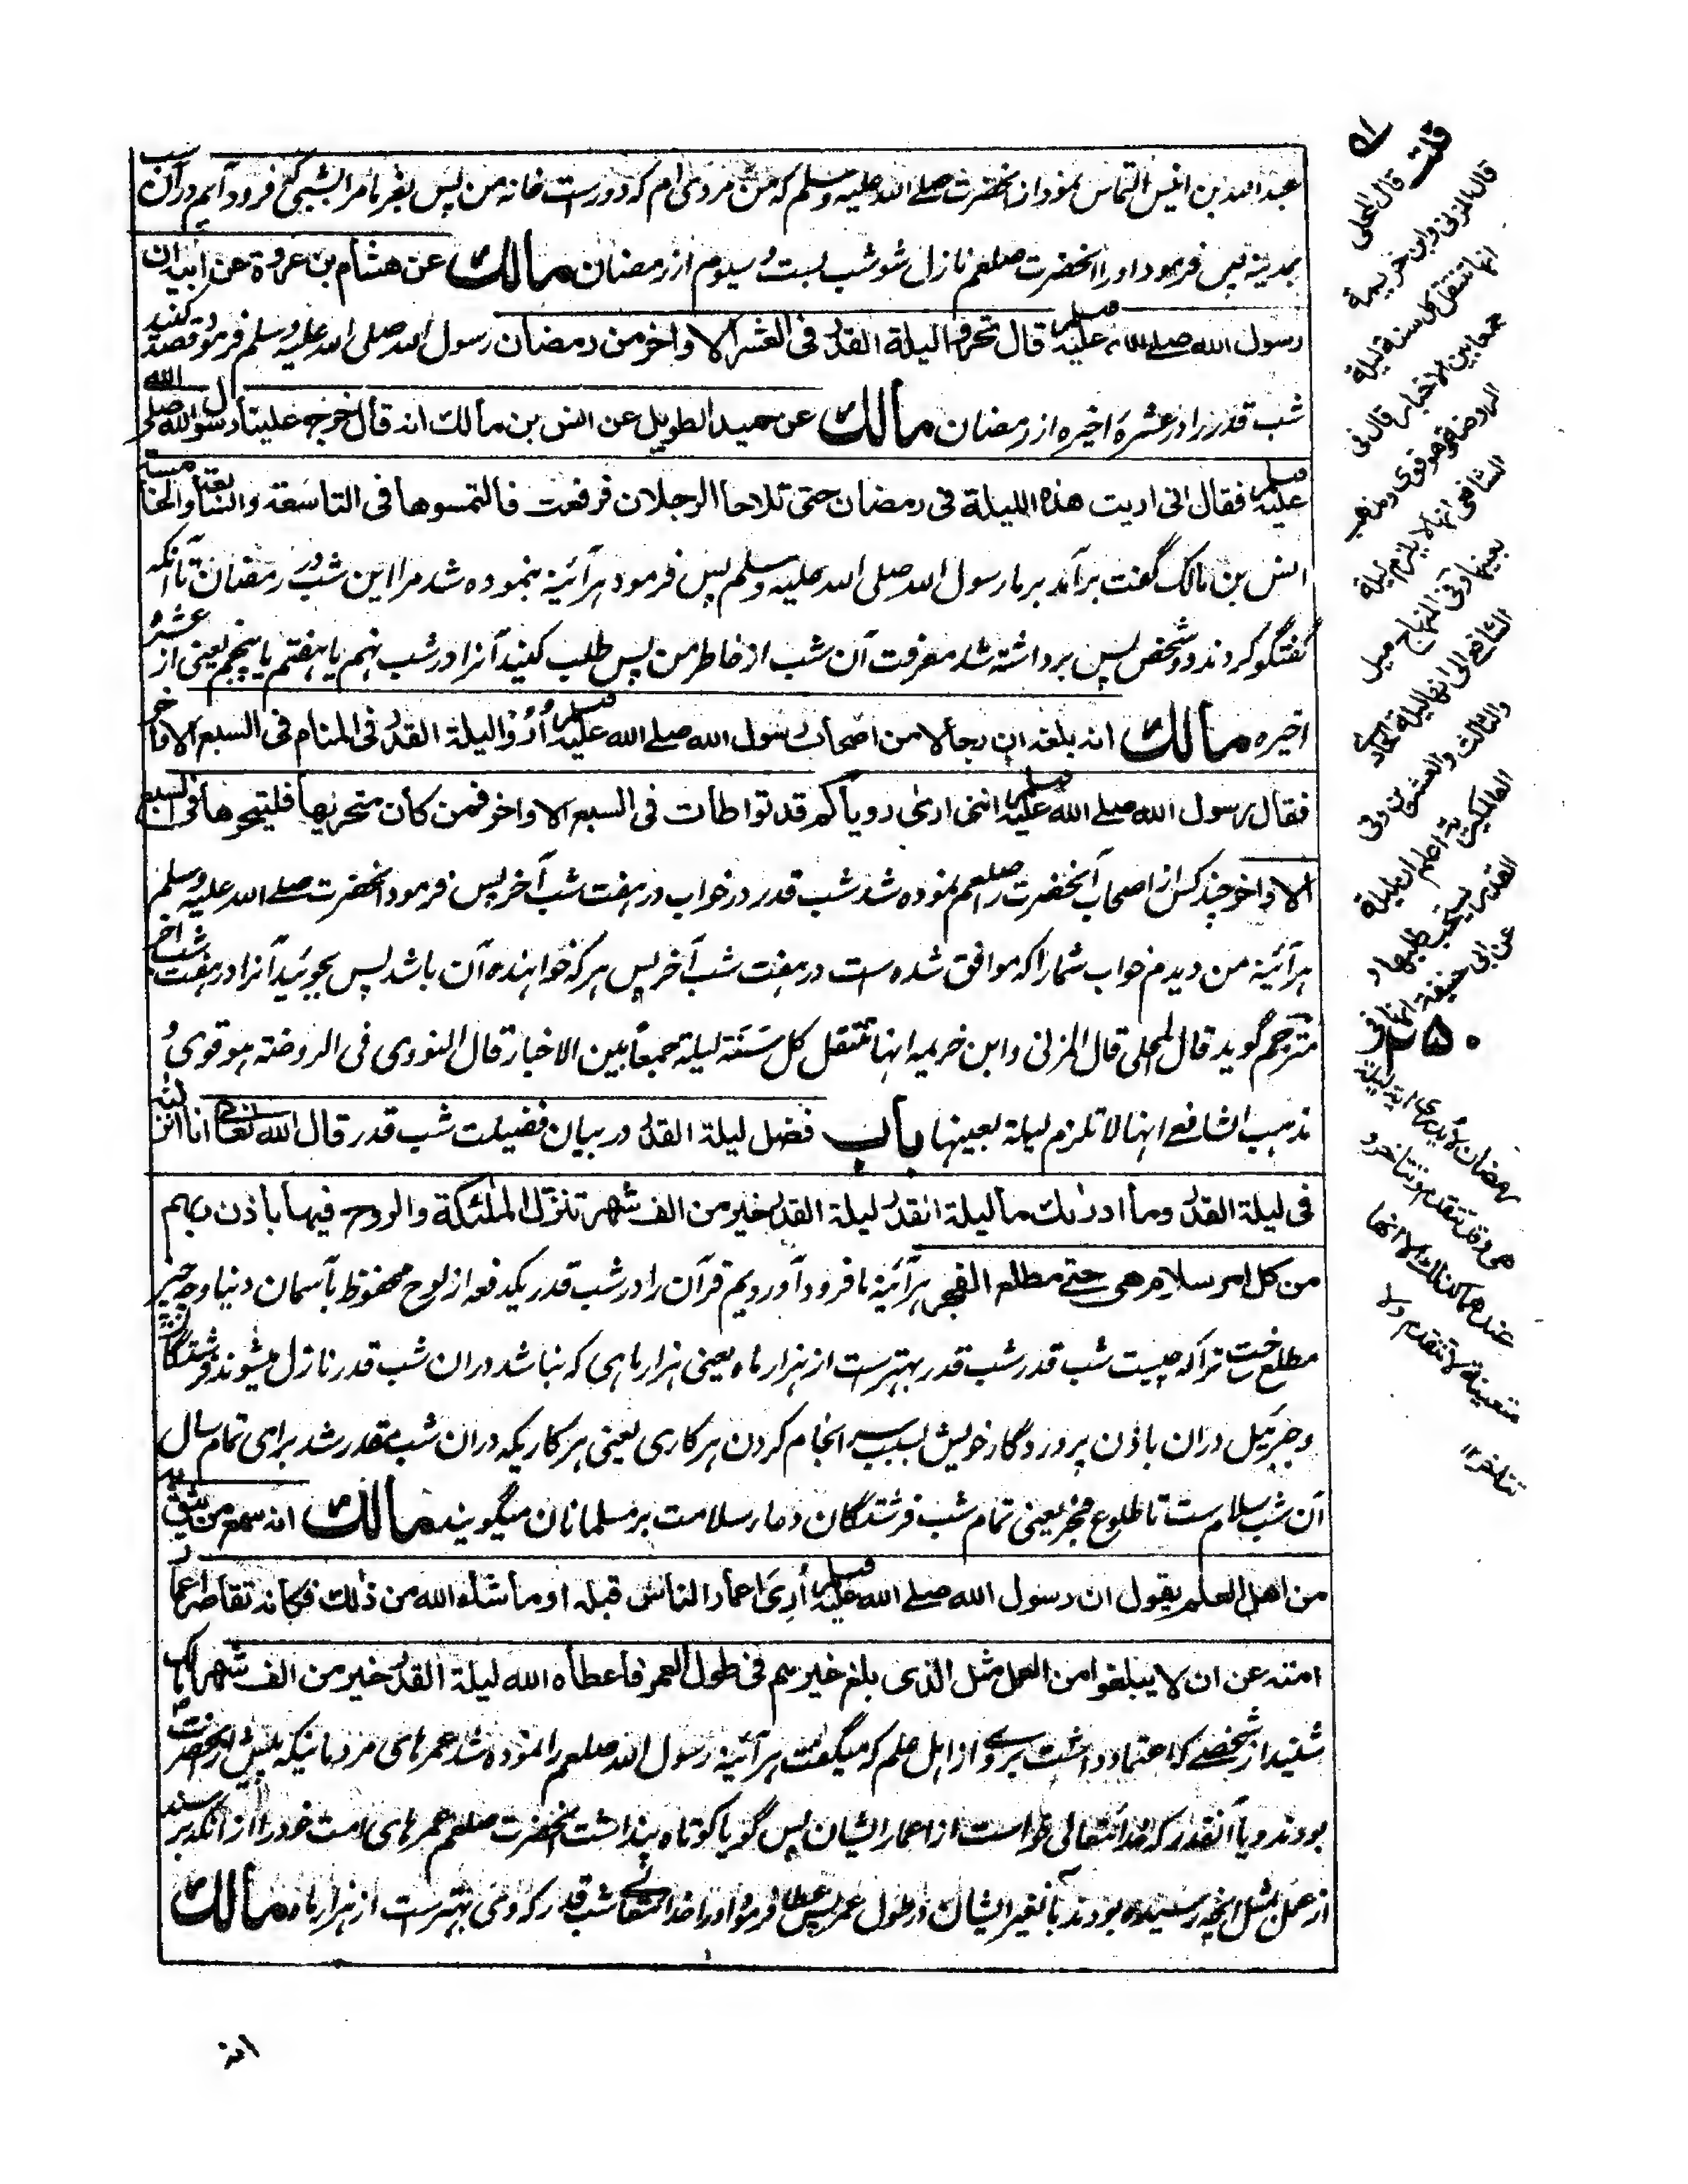 عبد الله بن انیس التماس نمود از آنحضرت صلے الله علیه وسلم که من مردی ام که دورست خانه من پس بفرما مرا بشبی که فرود آیم دران شب
بمدینه پس فرمود او را آنحضرت صلعم نازل شو شب بست و سیوم از رمضان مالك عن هشام بن عروة عن ابیه ان
رسول الله صلے الله علیه وسلم قال تحروا لیلة القدر فی العشر الاواخر من رمضان رسول الله صلی الله علیه وسلم فرمود قصد کنید
شب قدر را در عشرهٔ اخیره از رمضان مالك عن حمید الطویل عن انس بن مالك انه قال خرج علینا رسول الله صلے الله
علیه وسلم فقال انی اریت هذه اللیلة فی رمضان حتی تلاحا الرجلان فرفعت فالتمسوها فی التاسعة والسابعة والخامسة
انس بن مالک گفت برآمد بر ما رسول الله صلی الله علیه وسلم پس فرمود هرآئینه نموده شد مرا این شب در رمضان تا آنکه
گفتگو کردند دو شخص پس برداشته شد معرفت آن شب از خاطر من پس طلب کنید آنرا در شب نهم یا هفتم یا پنجم یعنی از عشره
اخیره مالك انه بلغه ان رجالا من اصحاب رسول الله صلے الله علیه وسلم اُرُوا لیلة القدر فی المنام فی السبع الاواخر
فقال رسول الله صلے الله علیه وسلم اننی اری رویاکم قد تواطأت فی السبع الاواخر فمن کان متحریها فلیتحرها فی السبع
الاواخر چند کس از اصحاب آنحضرت صلعم نموده شد شب قدر در خواب در هفت شب آخر پس فرمود آنحضرت صلے الله علیه وسلم
هرآئینه من دیدم خواب شما را که موافق شده ست در هفت شب آخر پس هر که خواهنده آن باشد پس بجوئید آنرا در هفت شب آخر
مترجم گوید قال المحلی قال المزنی وابن خزیمه انها تنتقل کل سَنَة لیلة جمعا بین الاخبار قال النووی فی الروضته هو قوی و
مذهب الشافعے انها لا تلزم لیلة بعینها باب فضل لیلة القدر در بیان فضیلت شب قدر قال الله تعالے انا انزلناه
فی لیلة القدر وما ادرٰىك ما لیلة القدر لیلة القدر خیر من الف شهر تنزل الملٰئكة والروح فیها باذن ربهم
من كل امر سلام هی حتے مطلع الفجر هرآئینه ما فرود آوردیم قرآن را در شب قدر یکدفعه از لوح محفوظ بآسمان دنیا وچه چیز
مطلع ساخت ترا که چیست شب قدر شب قدر بهترست از هزار ماه یعنی هزار ماهی که نباشد دران شب قدر نازل میشوند فرشتگان
وجبرئیل دران باذن پروردگار خویش بسبب سر انجام کردن هر کاری یعنی هر کاریکه دران شب مقدر شد برای تمام سال
آن شب سلام ست تا طلوع فجر یعنی تمام شب فرشتگان دعاء سلامت بر مسلمانان میگویند مالك انه سمع من یثق به
من اهل العلم یقول ان رسول الله صلے الله علیه وسلم اُرِیَ اعمار الناس قبله او ما شاء الله من ذٰلك فكانه تقاصر اعمار
امته عن ان لا یبلغوا من العمل مثل الذی بلغ غیرهم فی طول العمر فاعطاه الله لیلة القدر خیر من الف شهر مالک
شنید از شخصے که اعتماد داشت بر وے از اهل علم که میگفت هرآئینه رسول الله صلعم را نموده شد عمرهای مردمانیکه پیش از آنحضرت
بودند ویا آنقدر که خدایتعالی خواست از اعمار ایشان پس گویا کوتاه پنداشت آنحضرت صلعم عمرهای امت خود را از آنکه برسند
از عمل بمثل آنچه رسیده بودند بآن غیر ایشان در طول عمر پس عطا فرمود او را خدایتعالے شب قدر که وی بهترست از هزار ماه مالك
انه
قلت قال المحلی
قال المزنی وابن خزیمة
انها تنتقل کل سنة لیلة
جمعا بین الاخبار قال فی
الروضة هو قوی ومذهب
الشافعی انها لا یلزم لیلة
بعینها وفی المنهاج میل
الشافعے الی انها لیلة الحادی
والثالث والعشرین وفی
العالمگیریة اعلم ان لیلة
القدر یستحب طلبها و
عن ابی حنیفة انها فی
۲۵۰
رمضان لا یدری ایة لیلة
هی وقد تتقدم وتتاخر و
عندهما کذلك الا انها
متعینة لا تتقدم ولا
تتاخر ۱۲